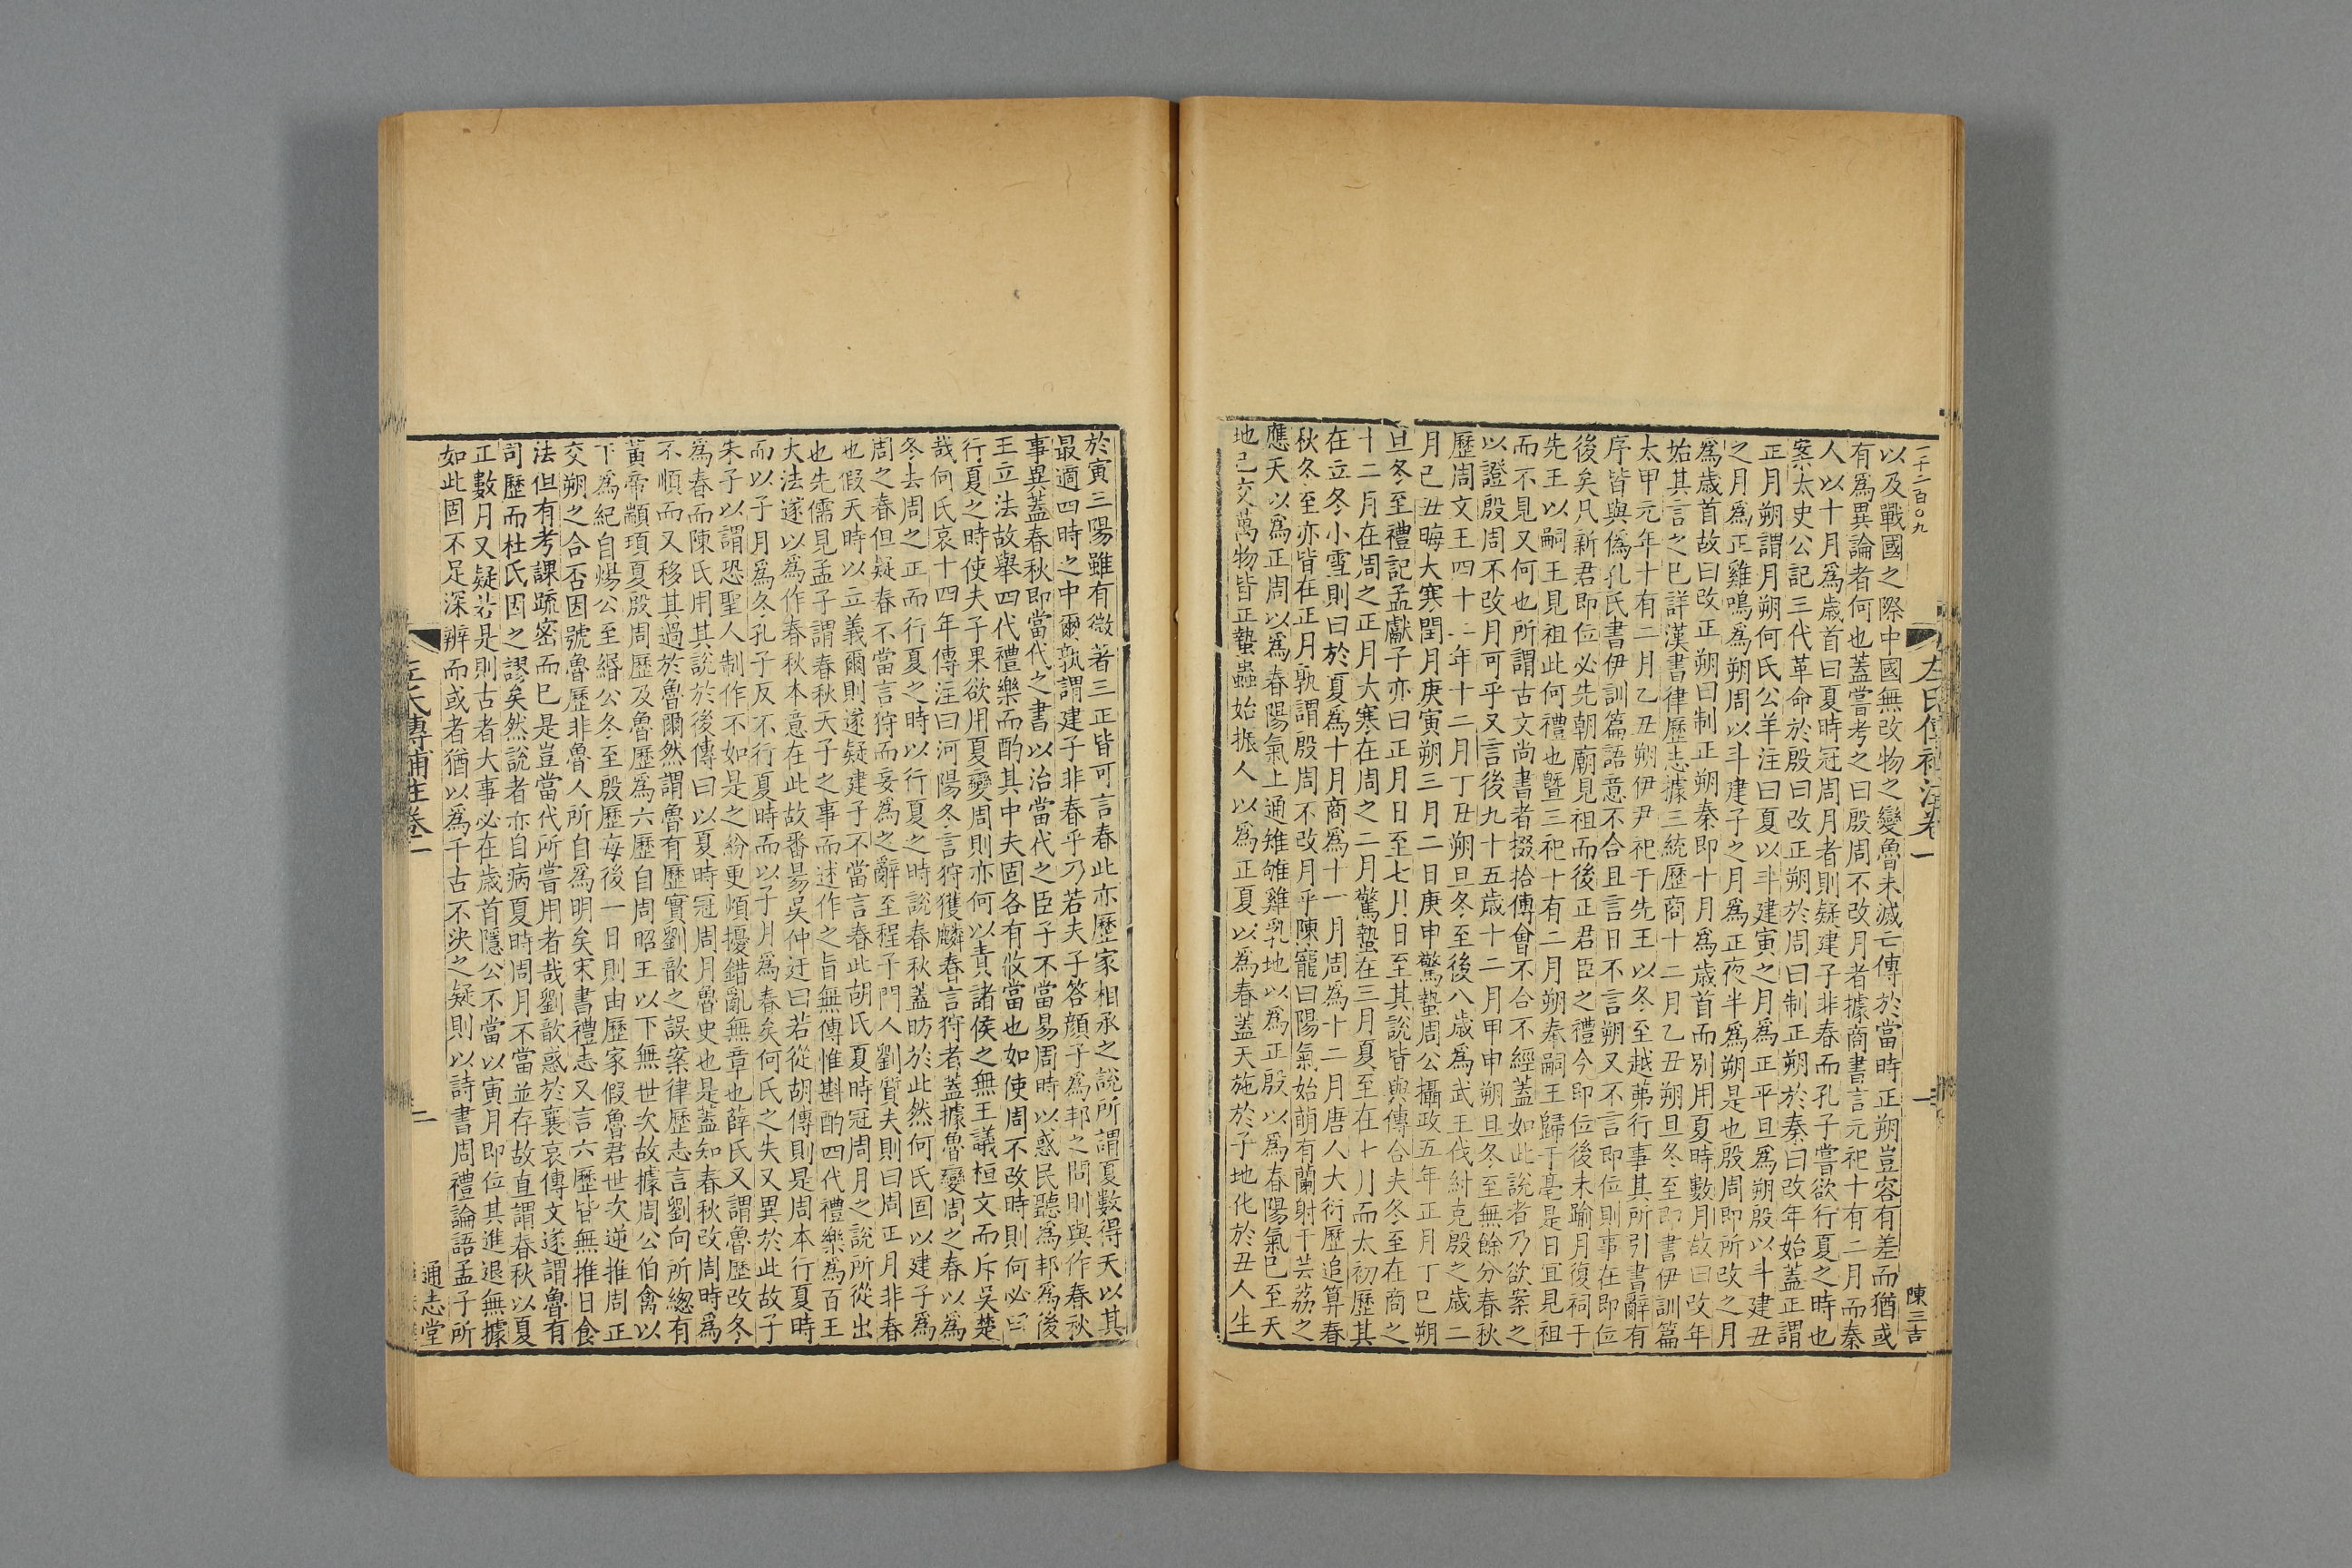 一千二百〇九
左氏傳補注卷一
二
陳三吉
以及戰國之際中國無改物之變魯未滅亡傳於當時正朔豈容有差而猶或
有爲異論者何也蓋嘗考之曰殷周不改月者據商書言元祀十有二月而秦
人以十月爲歲首曰夏時冠周月者則疑建子非春而孔子嘗欲行夏之時也
案太史公記三代革命於殷曰改正朔於周曰制正朔於秦曰改年始蓋正謂
正月朔謂月朔何氏公羊注曰夏以斗建寅之月爲正平旦爲朔殷以斗建丑
之月爲正雞鳴爲朔周以斗建子之月爲正夜半爲朔是也殷周即所改之月
爲歲首故曰改正朔曰制正朔秦即十月爲歲首而別用夏時數月故曰改年
始其言之已詳漢書律歷志據三統歷商十二月乙丑朔旦冬至即書伊訓篇
太甲元年十有二月乙丑朔伊尹祀于先王以冬至越茀行事其所引書辭有
序皆與僞孔氏書伊訓篇語意不合且言日不言朔又不言即位則事在即位
後矣凡新君即位必先朝廟見祖而後正君臣之禮今即位後未踰月復祠于
先王以嗣王見祖此何禮也暨三祀十有二月朔奉嗣王歸于亳是日宜見祖
而不見又何也所謂古文尚書者掇拾傅會不合不經蓋如此說者乃欲案之
以證殷周不改月可乎又言後九十五歲十二月甲申朔旦冬至無餘分春秋
歷周文王四十二年十二月丁丑朔旦冬至後八歲爲武王伐紂克殷之歲二
月己丑晦大寒閏月庚寅朔三月二日庚申驚蟄周公攝政五年正月丁巳朔
旦冬至禮記孟獻子亦曰正月日至七月日至其說皆與傳合夫冬至在商之
十二月在周之正月大寒在周之二月驚蟄在三月夏至在七月而太初歷其
在立冬小雪則曰於夏爲十月商爲十一月周爲十二月唐人大衍歷追算春
秋冬至亦皆在正月孰謂殷周不改月乎陳寵曰陽氣始萌有蘭射干芸荔之
應天以爲正周以爲春陽氣上通雉雊雞乳地以爲正殷以爲春陽氣已至天
地已交萬物皆正蟄蟲始振人以爲正夏以爲春蓋天施於子地化於丑人生
於寅三陽雖有微著三正皆可言春此亦歷家相承之說所謂夏數得天以其
最適四時之中爾孰謂建子非春乎乃若夫子答顏子爲邦之問則與作春秋
事異蓋春秋即當代之書以治當代之臣子不當易周時以惑民聽爲邦爲後
王立法故舉四代禮樂而酌其中夫固各有攸當也如使周不改時則何必曰
行夏之時使夫子果欲用夏變周則亦何以責諸侯之無王議桓文而斥吳楚
哉何氏哀十四年傳注曰河陽冬言狩獲麟春言狩者蓋據魯變周之春以爲
冬去周之正而行夏之時以行夏之時說春秋蓋昉於此然何氏固以建子爲
周之春但疑春不當言狩而妄爲之辭至程子門人劉質夫則曰周正月非春
也假天時以立義爾則遂疑建子不當言春此胡氏夏時冠周月之說所從出
也先儒見孟子謂春秋天子之事而述作之旨無傳惟斟酌四代禮樂爲百王
大法遂以爲作春秋本意在此故番昜吳仲迂曰若從胡傳則是周本行夏時
而以子月爲冬孔子反不行夏時而以子月爲春矣何氏之失又異於此故子
朱子以謂恐聖人制作不如是之紛更煩擾錯亂無章也薛氏又謂魯歷改冬
爲春而陳氏用其說於後傳曰以夏時冠周月魯史也是蓋知春秋改周時爲
不順而又移其過於魯爾然謂魯有歷實劉歆之誤案律歷志言劉向所緫有
黃帝顓頊夏殷周歷及魯歷爲六歷自周昭王以下無世次故據周公伯禽以
下爲紀自煬公至緡公冬至殷歷每後一日則由歷家假魯君世次逆推周正
交朔之合否因號魯歷非魯人所自爲明矣宋書禮志又言六歷皆無推日食
法但有考課疏密而已是豈當代所嘗用者哉劉歆惑於襄哀傳文遂謂魯有
司歷而杜氏因之謬矣然說者亦自病夏時周月不當並存故直謂春秋以夏
正數月又疑若是則古者大事必在歲首隱公不當以寅月即位其進退無據
如此固不足深辨而或者猶以爲千古不決之疑則以詩書周禮論語孟子所
左氏傳補注卷一
二
通志堂